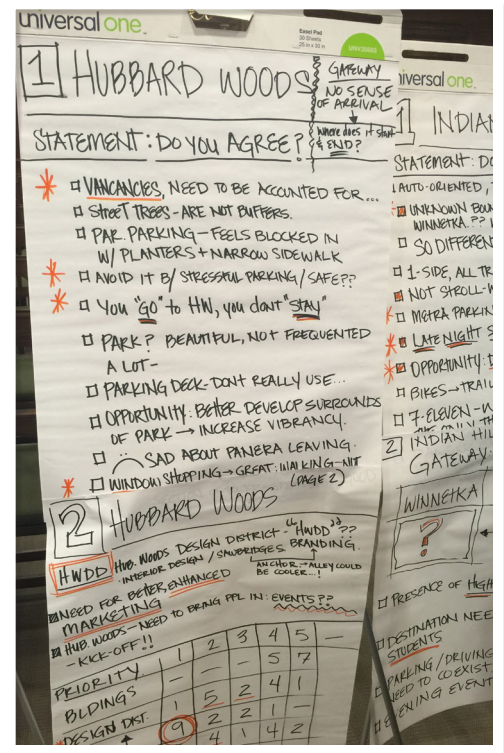 universal one
Easel Pad
30-Sheets
25 in x 30 in
1 HUBBARD WOODS
GATEWAY
NO SENSE
OF ARRIVAL
Where does it start
& END?
STATEMENT: DO YOU AGREE?
VANCANCIES, NEED TO BE ACCOUNTED FOR...
STREET TREES - ARE NOT BUFFERS.
PAR. PARKING - FEELS BLOCKED IN
W/ PLANTERS + NARROW SIDEWALK
AVOID IT B/ STRESSFUL PARKING/SAFE??
You "GO" to HW, you dont "STAY"
PARK? BEAUTIFUL, NOT FREQUENTED
A LOT-
PARKING DECK-DONT REALLY USE...
OPPORTUNITY: BETTER DEVELOP SURROUNDS
OF PARK → INCREASE VIBRANCY.
SAD ABOUT PANERA LEAVING.
WINDOW SHOPPING → GREAT: WALKING-NOT
(PAGE 2)
2 HUBBARD WOODS
HWDD HUB. WOODS DESIGN DISTRICT - "HWDD"??
INTERIOR DESIGN / BRANDING.
ANCHOR → ALLEY COULD
BE COOLER...!
NEED FOR BETTER, ENHANCED
MARKETING
HUB. WOODS - NEED TO BRING PPL IN: EVENTS??
- KICK-OFF!!
PRIORITY 1 2 3 4 5 —
BLDINGS — — — 5 7
DESIGN DIST. 1 5 2 4 1
9 2 2 1 —
4 1 4 2
universal one
1 INDIAN
STATEMENT: DO
AUTO-ORIENTED,
UNKNOWN BOUN
WINNETKA.??
SO DIFFEREN
1-SIDE, ALL TR
NOT STROLL-
METRA PARKIN
LATE NIGHT S
OPPORTUNITY:
BIKES → TRAIL
7-ELEVEN -
2 INDIAN HIL
GATEWAY
WINNETKA
?
PRESENCE OF HIGH
DESTINATION NEE
STUDENTS
PARKING / DRIVING
NEED TO COEXIST
EVENING EVENT